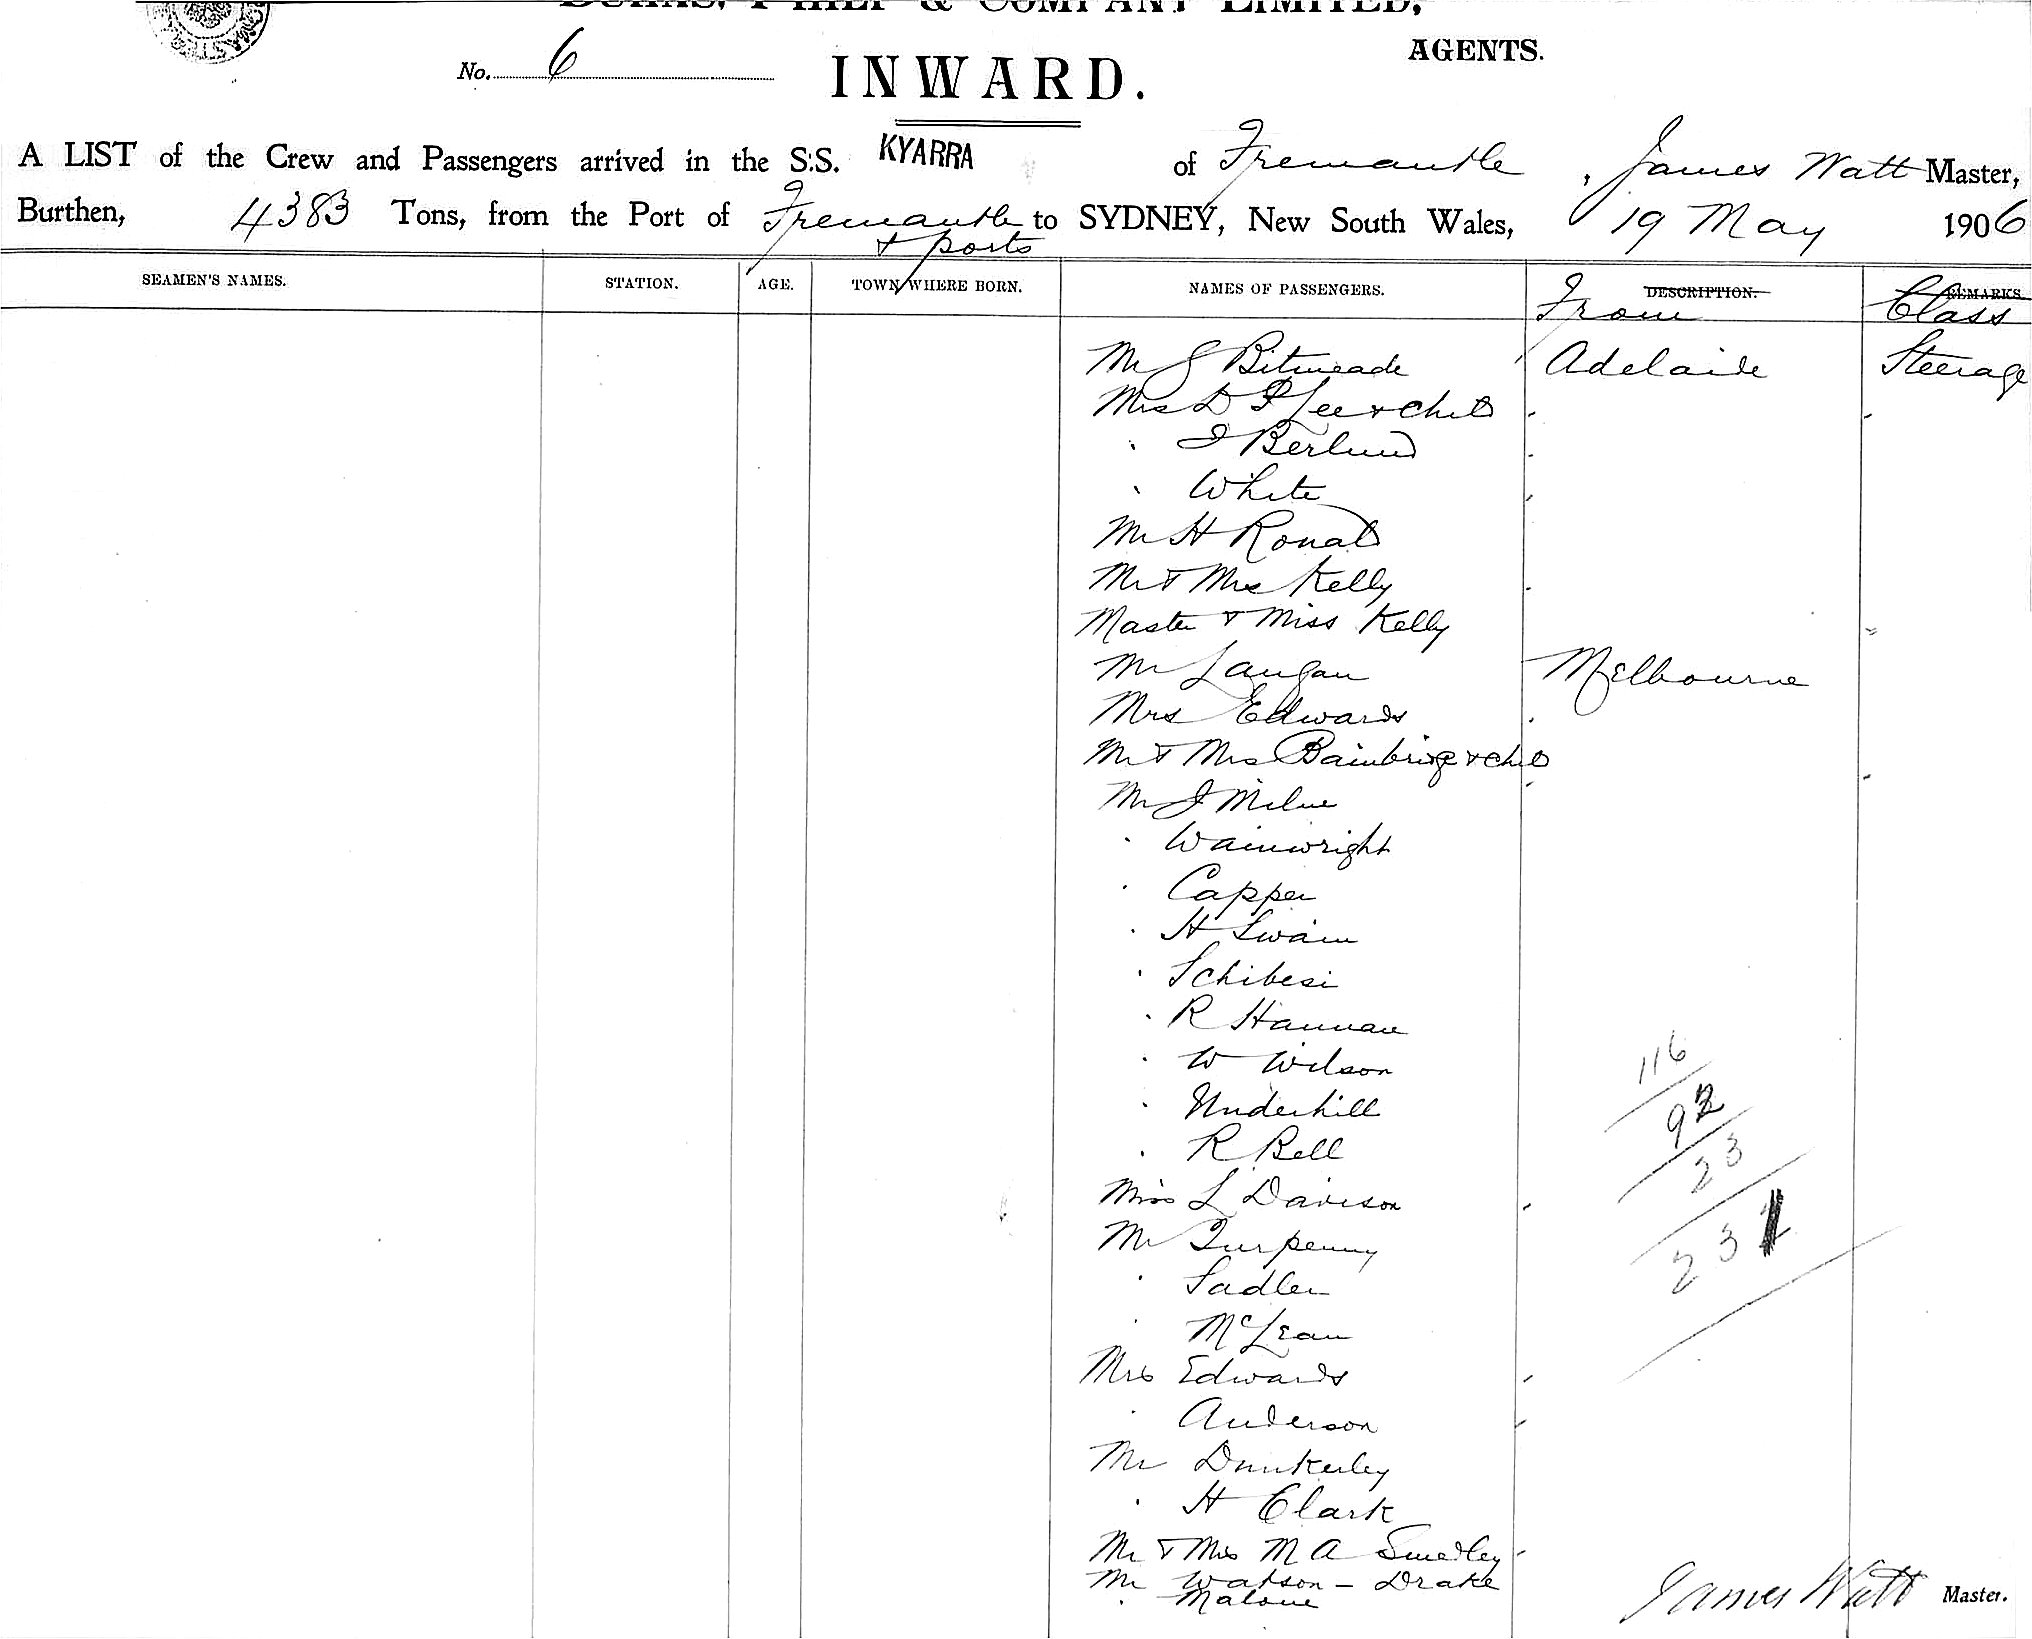 BURNS, PHILP & COMPANY LIMITED,
AGENTS.
No. 6
INWARD.
A LIST of the Crew and Passengers arrived in the S.S. KYARRA of Fremantle, James Watt Master,
Burthen, 4383 Tons, from the Port of Fremantle to SYDNEY, New South Wales, 19 May 1906
& ports
SEAMEN'S NAMES. STATION. AGE. TOWN WHERE BORN. NAMES OF PASSENGERS. DESCRIPTION. REMARKS
From Class
Mr J Bitmeade Adelaide Steerage
Mrs D P Lee & child
" J Berlund
" White
Mr H Ronald
Mr & Mrs Kelly
Master & Miss Kelly
Mr Langan Melbourne
Mrs Edwards
Mr & Mrs Bainbridge & child
Mr J Milne
" Wainwright
" Capper
" H Swain
" Schibesi
" R Hannan
" W Wilson
" Underhill
" R Bell
Miss L Davison
Mr Turpenny
" Sadler
" McLean
Mrs Edwards
" Anderson
Mr Dunkerley
" H Clark
Mr & Mrs M A Smedley
Mr Watson - Drake
" Malone
116
92
23
231
James Watt Master.